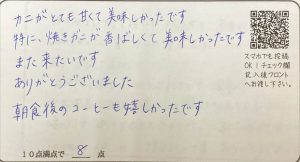 カニがとても甘くて美味しかったです
特に、焼きガニが香ばしくて美味しかったです
また来たいです
ありがとうございました
朝食後のコーヒーも嬉しかったです
スマホでも投稿
OK！チェック欄
記入後フロント
へお渡し下さい。
10点満点で 8 点